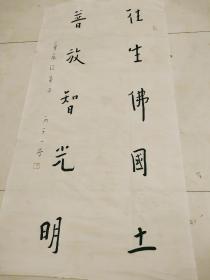 往生佛國土
普放智光明